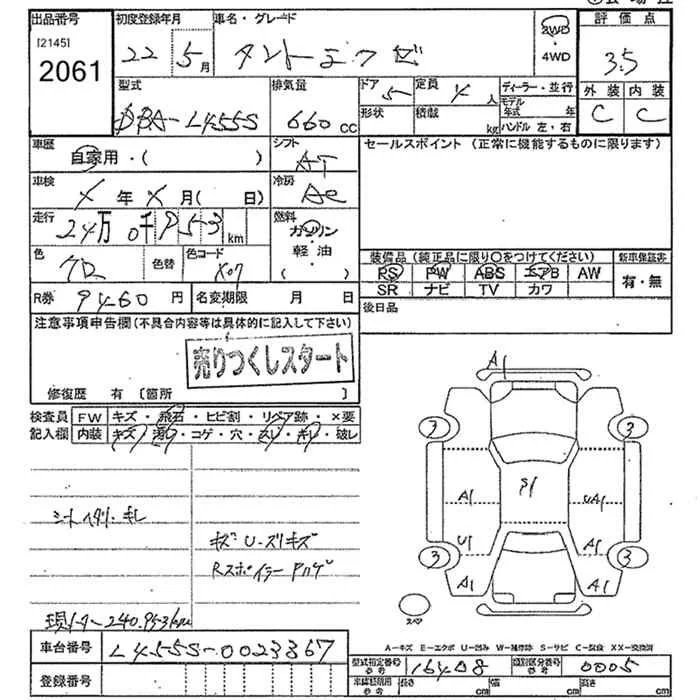 出品番号 初度登録年月 車名・グレード 2WD 評価点
[2145]
2061 22 5月 タントエグゼ ・4WD 3.5
型式 排気量 ドア 5 定員 4人 ディーラー・並行 外装 内装
DBA-L455S 660 CC 形状 積載 kg モデル年式 年 C C
ハンドル 左・右
車歴 自家用・( ) シフト AT セールスポイント (正常に機能するものに限ります)
車検 X年X月( 日) 冷房 AC
走行 24万0千953km 燃料 ガソリン
軽油
( )
色 色替 色コード X07 装備品 (純正品に限り○をつけてください) 新車保証書
PS PW ABS エアB AW 有・無
SR ナビ TV カワ
R券 9460円 名変期限 月 日 後日品
注意事項申告欄 (不具合内容等は具体的に記入して下さい)
売りつくしスタート
修復歴 有 〔箇所 〕
検査員 FW キズ・飛石・ヒビ割・リペア跡・×要
記入欄 内装 キズ・汚れ・コゲ・穴・スレ・キレ・破レ
シートヘタリ・キレ
キズ U・スリキズ
Rスポイラー ハゲ
現メーター240.953km
車台番号 L455S-0023367
登録番号
A1
3 3
S1
A1 UA1
U1 A1
3 3
A1 A1
スペア
A-キズ E-エクボ U-凹み W-補修跡 S-サビ C-腐食 XX-交換済
型式指定番号 参考 16408 類別区分番号 参考 0005
車庫証明用 参考 長さ cm 幅 cm 高さ cm